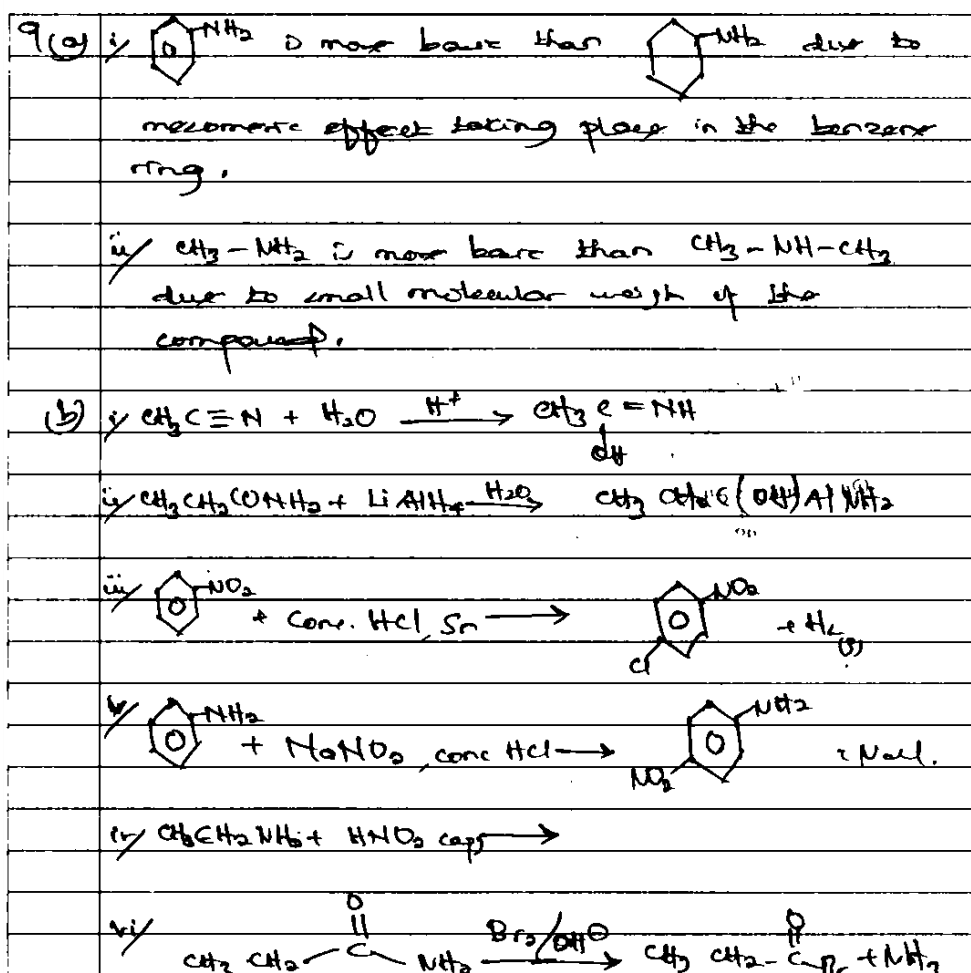 9(a) i/ NH2 is more basic than NH2 due to
mesomeric effect taking place in the benzene
ring.
ii/ CH3-NH2 is more basic than CH3-NH-CH3
due to small molecular weigh of the
compound.
(b) i/ CH3C≡N + H2O H+ → CH3 C = NH
OH
ii/ CH3CH2CONH2 + LiAlH4 H2O →
iii/ NO2 + Conc. HCl, Sn → NO2 Cl + H2(g)
NH2 + NaNO2, conc HCl → NH2 NO2 + NaCl.
CH3CH2NH2 + HNO2 →
vi/ CH3 CH2 C O NH2 Br2/OH⊖ → CH3 CH2-C O Br + NH3